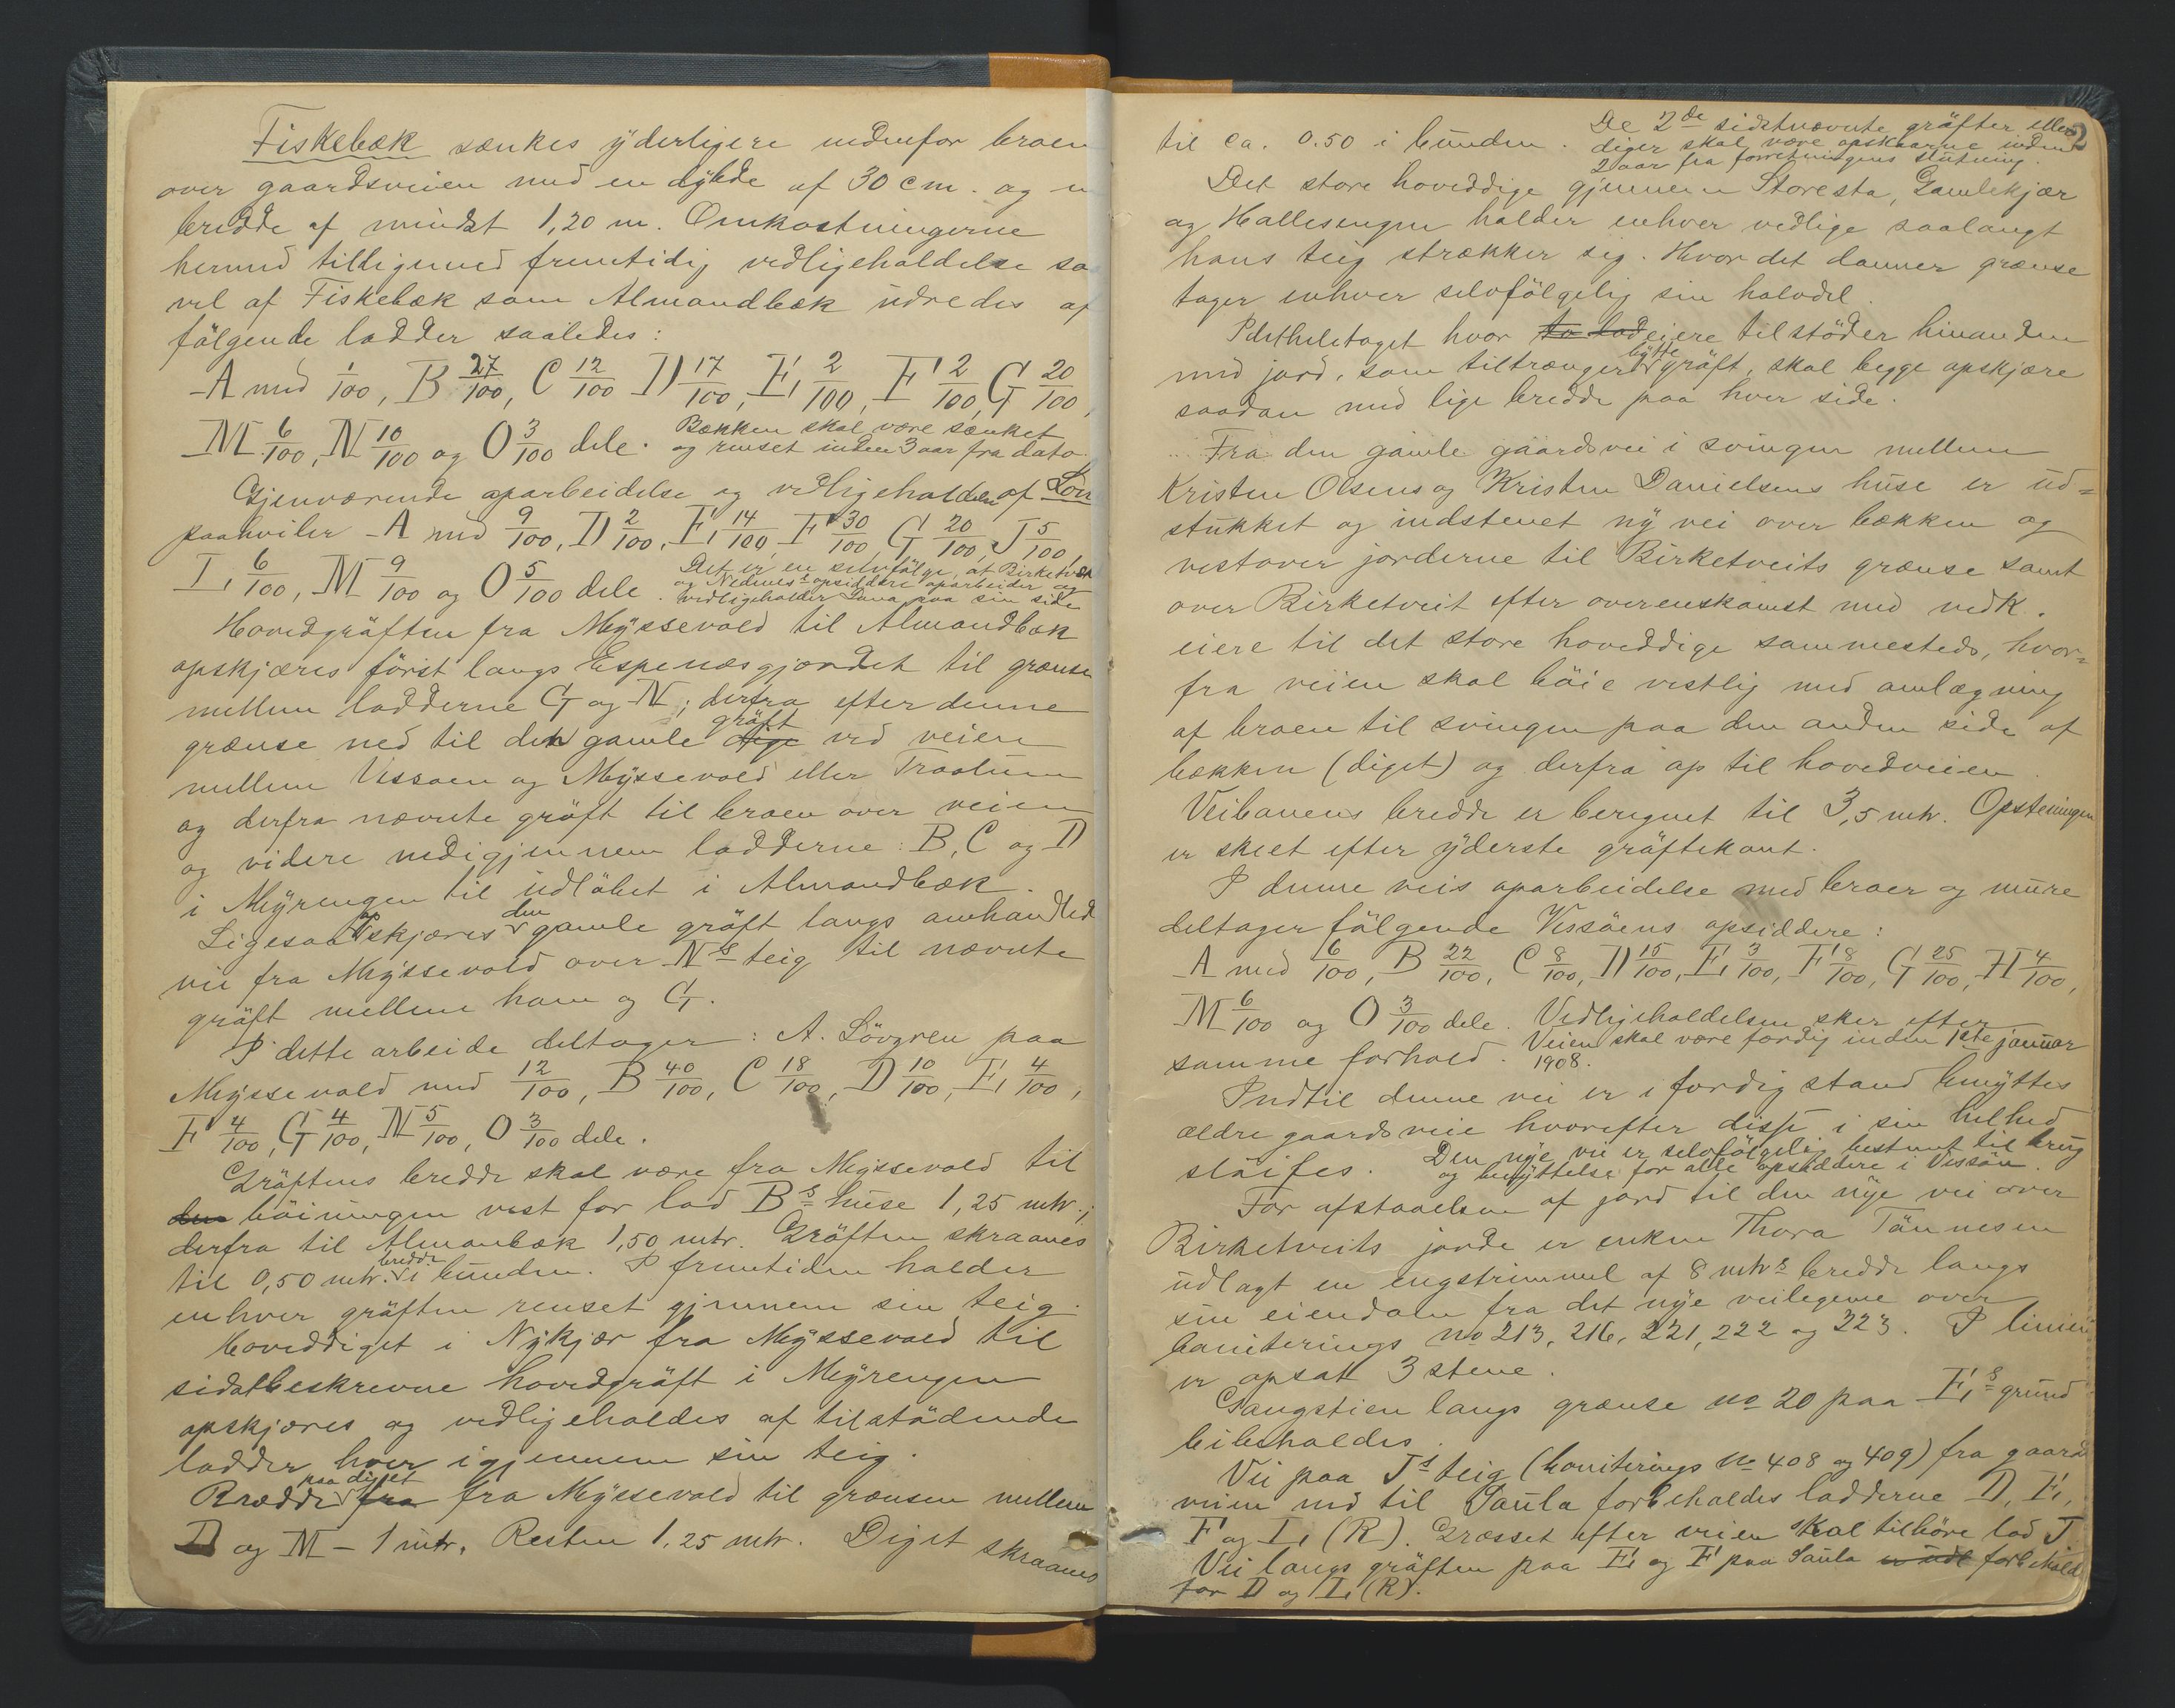 Fiskebæk sænkes ÿderligere nedenfor broen
over gaardsveien med en dÿbde af 30 cm. og en
bredde af mindst 1,20 m. Omkostningerne
hermed tilligemed fremtidig vedligeholdelse sa
vel af Fiskebæk som Almandbæk udredes af
følgende lodder saaledes:
A med 1/100, B 27/100, C 12/100 D 17/100, E 2/100, F 2/100, G 20/100,
M 6/100, N 10/100 og O 3/100 dele. Bækken skal være sænket
og renset inden 3 aar fra dato.
Gjenværende oparbeidelse og vedligeholden af
paahviler A med 9/100, D 2/100, E 14/100, F 30/100, G 20/100, J 5/100,
L 6/100, M 9/100 og O 5/100 dele. Det er en selvfølge, at Birketvet
og Nedenes's opsiddere oparbeider og
vedligeholder paa sin side
Hovedgräften fra Mÿssevold til Almandbæk
opskjæres først langs Espenæsgjærdet til grænse
mellem lodderne G og N; derfra efter denne
grænse ned til den gamle dige gräft ved veien
mellem Vissøen og Mÿssevold eller
og derfra nævnte gräft til broen over veien
og videre nedigjennem lodderne: B, C og D
i Mÿrengen til udløbet i Almandbæk.
Ligesaa opskjæres den gamle gräft langs omhandled
vei fra Mÿssevold over N's teig til nævnte
gräft mellem ham og G.
I dette arbeide deltager: A. Løvgren paa
Mÿssevold med 12/100, B 40/100, C 18/100, D 10/100, E 4/100,
F 4/100, G 4/100, N 5/100, O 3/100 dele.
Gräftens bredde skal være fra Mÿssevold til
den bøiningen vest for lod B's huse 1,25 mtr.;
derfra til Almanbæk 1,50 mtr. Gräften skraanes
til 0,50 mtr. bredde i bunden. I fremtiden holder
enhver gräften renset gjennem sin teig.
Hoveddiget i Nÿkjær fra Mÿssevold til
sidstbeskrevne hovedgräft i Mÿrengen
opskjæres og vedligeholdes af tilstødende
lodder hver igjennem sin teig.
Bredde paa diget fra fra Mÿssevold til grænsen mellem
D og M – 1 mtr. Resten 1,25 mtr. Diget skraanes
2
til ca. 0.50 i bunden. De 2de sidstnævnte gräfter eller
diger skal være opskaarne inden
2 aar fra forretningens slutning.
Det store hoveddige gjennem Storesta, Gamlekjær
og Hallesengen holder enhver vedlige saalangt
hans teig strækker sig. Hvor det danner grænse
tager enhver selvfølgelig sin halvdel.
Idetheletaget hvor to lodeiere tilstøder hinanden
med jord, som tiltrænger bÿtte gräft, skal begge opskjære
saadan med lige bredde paa hver side.
Fra den gamle gaardsvei i svingen mellem
Kristen Olsens og Kristen Danielsens huse er ud=
stukket og indstenet nÿ vei over bækken og
vestover jorderne til Birketveits grænse samt
over Birketveit efter overenskomst med vedk.
eiere til det store hoveddige sammesteds, hvor=
fra veien skal bøie vestlig med omlægning
af broen til svingen paa den anden side af
bækken (diget) og derfra op til hovedveien.
Veibanens bredde er beregnet til 3,5 mtr. Opsteningen
er skeet efter ÿderste gräftekant.
I denne veis oparbeidelse med broer og mure
deltager følgende Vissøens opsiddere:
A med 6/100, B 22/100, C 8/100, D 15/100, E 3/100, F 8/100, G 25/100, H 4/100,
M 6/100 og O 3/100 dele. Vedligeholdelsen sker efter
samme forhold. Veien skal være færdig inden 1ste januar
1908.
Indtil denne vei er i færdig stand benÿttes
ældre gaardsveie hvorefter disse i sin helhed
sløifes. Den nÿe vei er selvfølgelig bestemt til brug
og benÿttelse for alle opsiddere i Vissøen.
For afstaaelsen af jord til den nÿe vei over
Birketveits jorde er enken Thora Tønnesen
udlagt en engstrimmel af 8 mtrs bredde langs
sin eiendom fra det nÿe veilegeme over
boniterings no 213, 216, 221, 222 og 223. I linien
er opsat 3 stene.
Gangstien langs grænse no 20 paa E's grund
beibeholdes.
Vei paa J's teig (boniterings no 408 og 409) fra gaards
veien ned til Saula forbeholdes lodderne D, E,
F og L (R). Græsset efter veien skal tilhøre lod J.
Vei langs gräften paa E og F paa Saula er udl forbehold
for D og L (R).